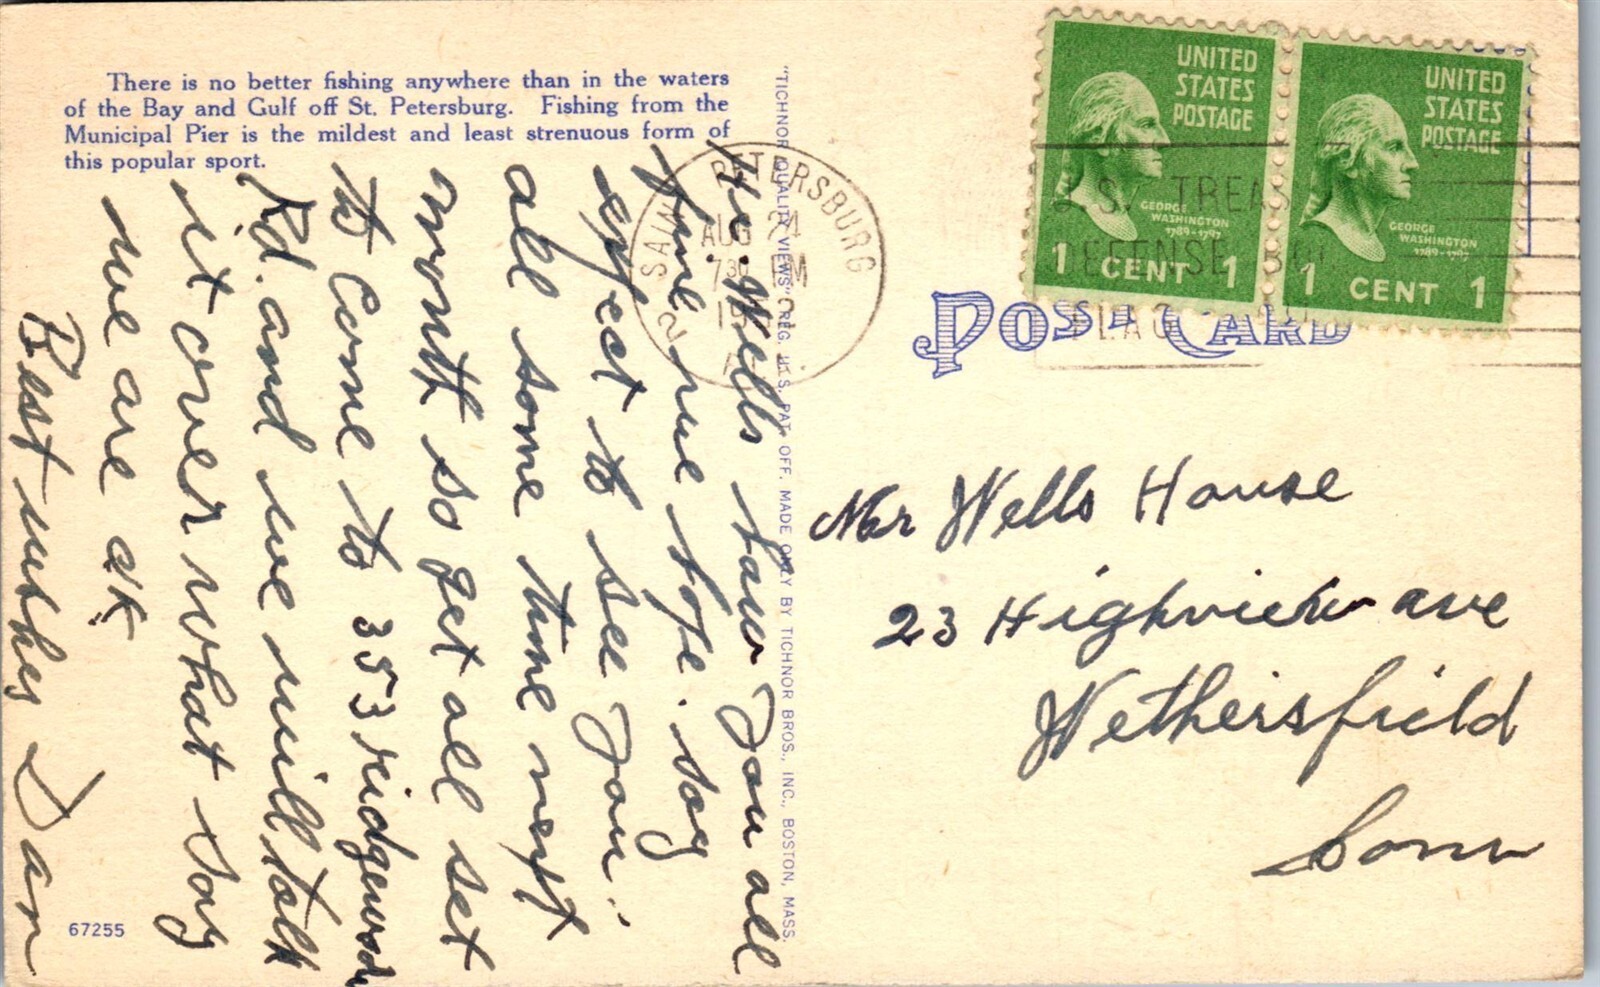 There is no better fishing anywhere than in the waters
of the Bay and Gulf off St. Petersburg. Fishing from the
Municipal Pier is the mildest and least strenuous form of
this popular sport.
He. Wells how you all
fine we hope. say
expect to see you
all some time next
month so get all set
to Come to 353 ridgewood
Rd. and we will talk
it over what say
we are ok
Best wishes Dan
67255
"TICHNOR QUALITY VIEWS" REG. U. S. PAT. OFF. MADE ONLY BY TICHNOR BROS., INC., BOSTON, MASS.
SAINT PETERSBURG
AUG 24
7 30 PM
19
2
UNITED
STATES
POSTAGE
GEORGE
WASHINGTON
1789-1797
1 CENT 1
UNITED
STATES
POSTAGE
GEORGE
WASHINGTON
1789-1797
1 CENT 1
U.S. TREAS
DEFENSE
FLA
POST CARD
Mr Wells House
23 Highview ave
Wethersfield
Conn